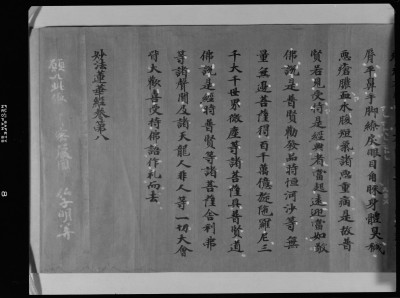 脣平鼻手脚繚戾眼目角睞身體臭穢
惡瘡膿血水腹短氣諸惡重病是故普
賢若見受持是經典者當起遠迎當如敬
佛說是普賢勸發品時恒河沙等無
量無邊菩薩得百千万億旋陀羅尼三
千大千世界微塵等諸菩薩具普賢道
佛說是經時普賢等諸菩薩舍利弗
等諸聲聞及諸天龍人非人等一切大會
皆大歡喜受持佛語作礼而去
妙法蓮華經卷第八
8